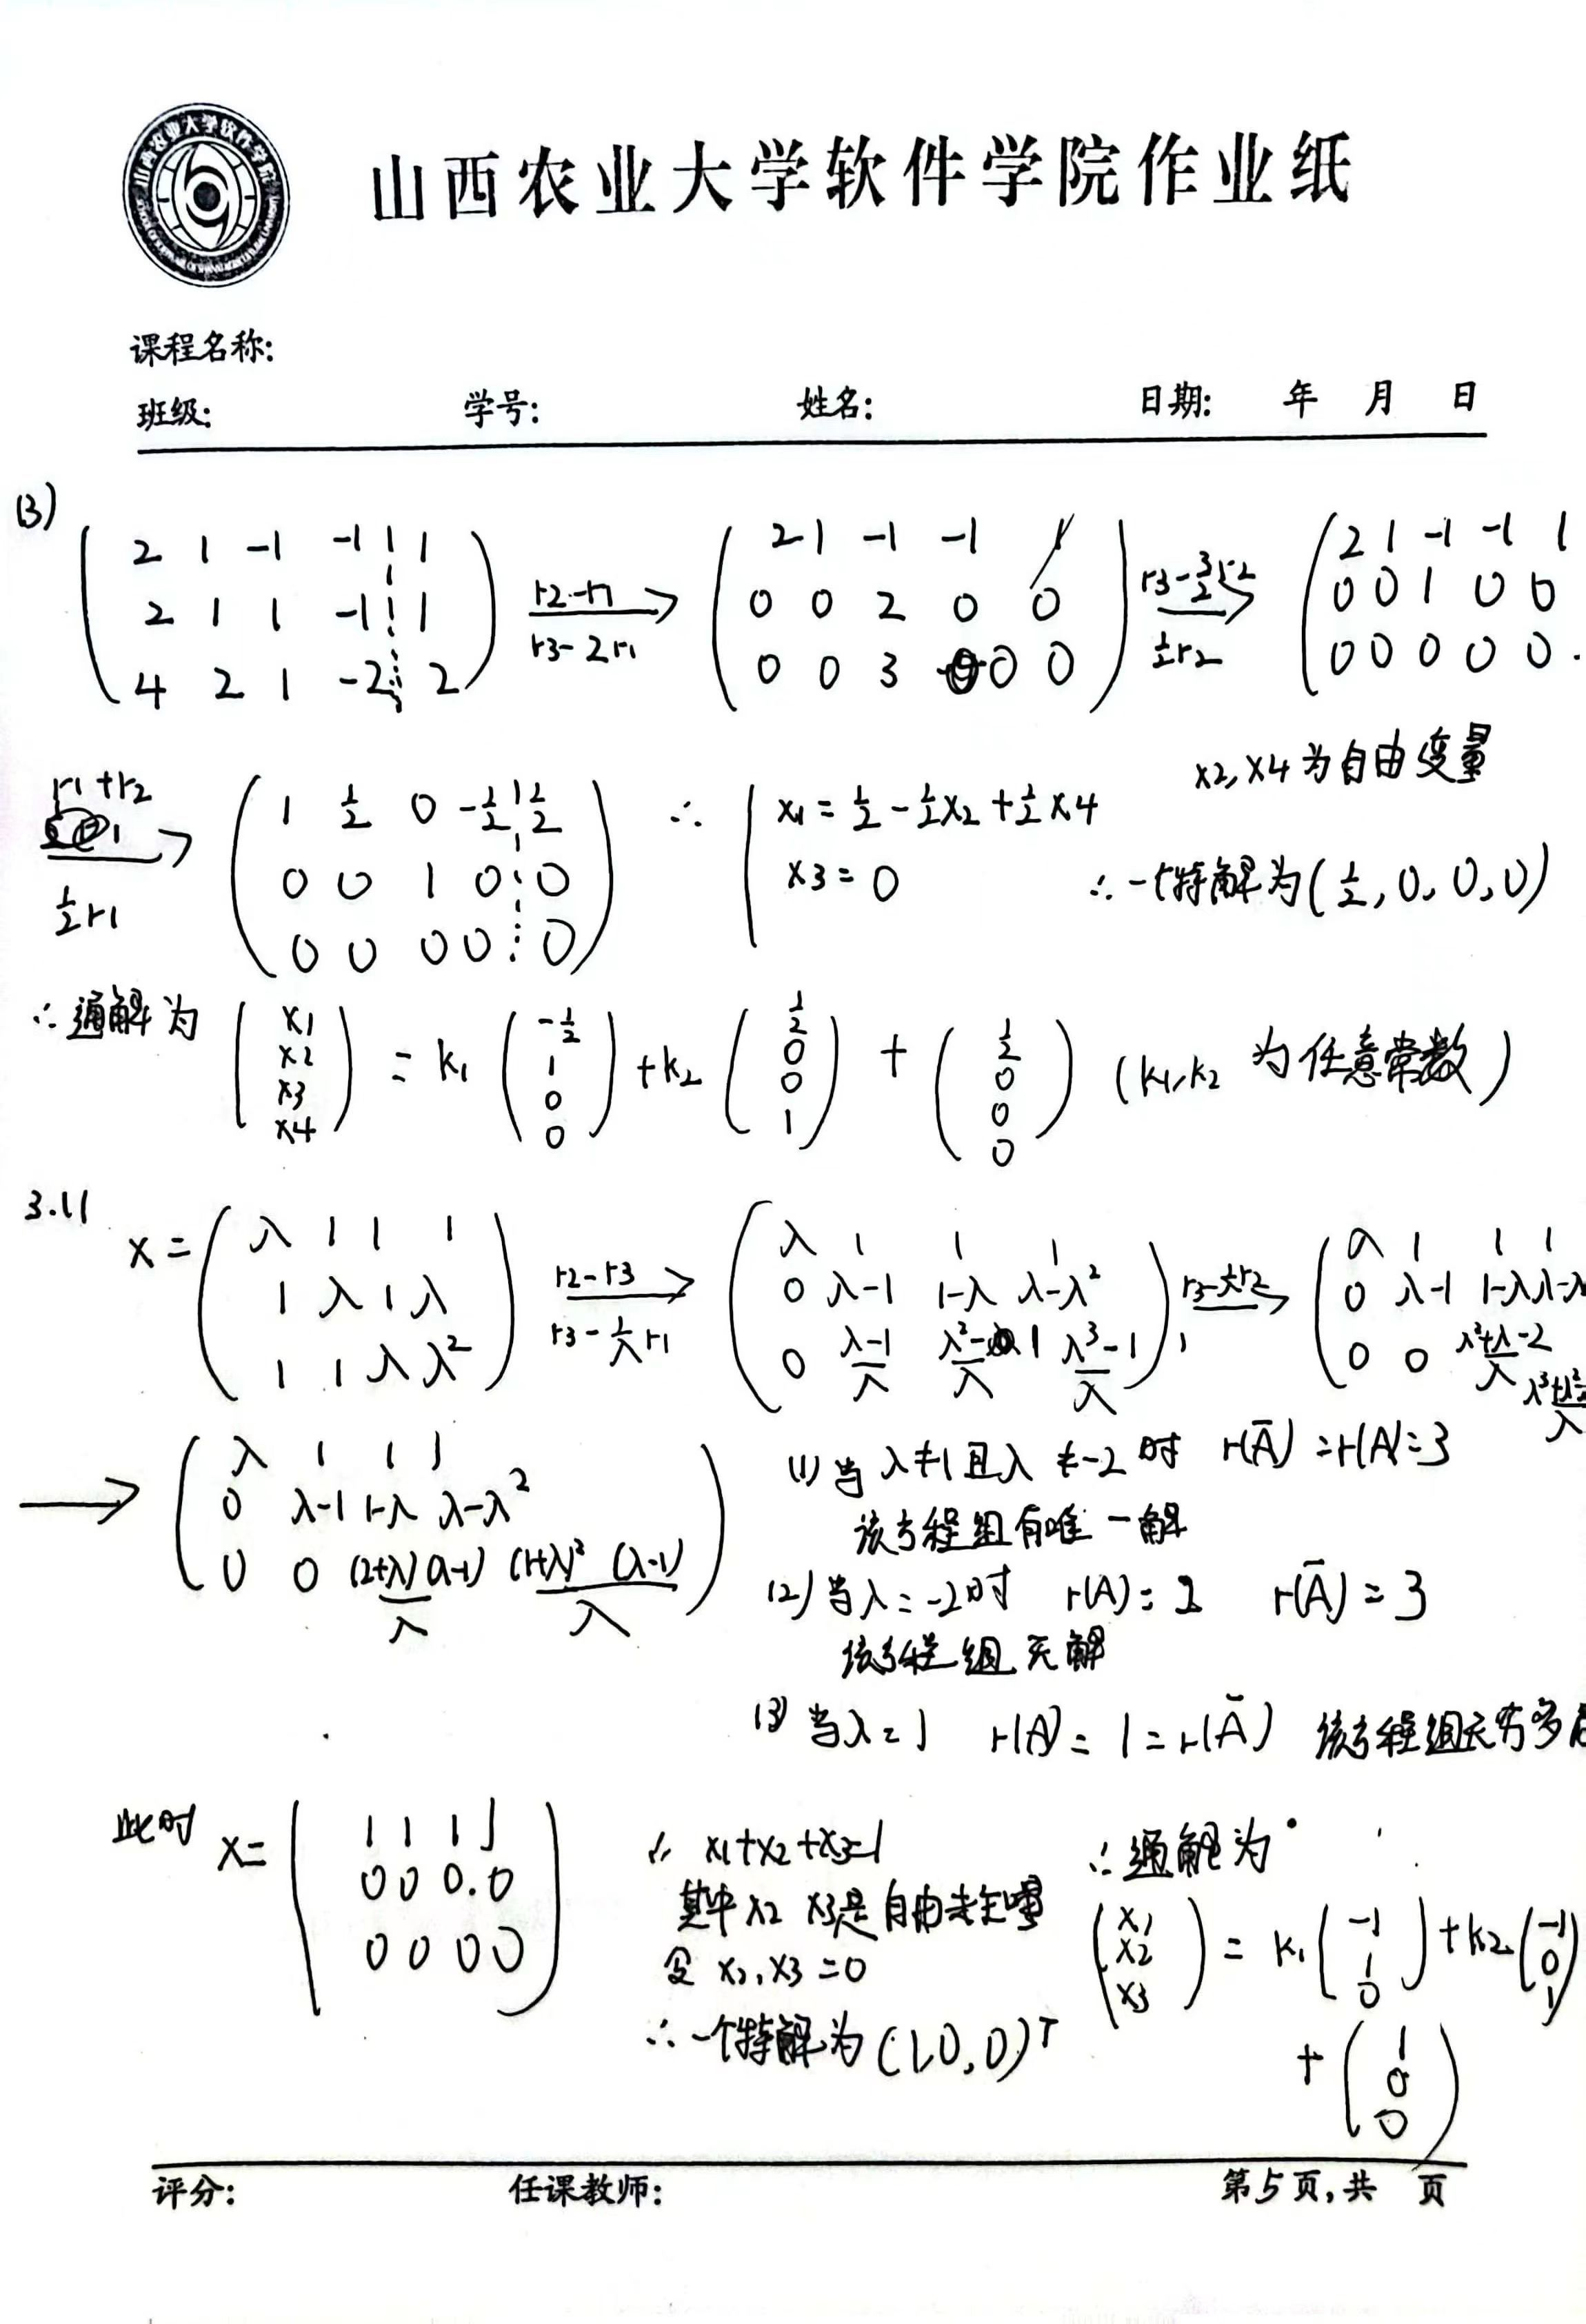 山西农业大学软件学院作业纸
课程名称:
班级: 学号: 姓名: 日期: 年 月 日
(3)
2 1 -1 -1 1
2 1 1 -1 1
4 2 1 -2 2
r2-r1
r3-2r1
2 1 -1 -1 1
0 0 2 0 0
0 0 3 0 0
r3-3/2r2
1/2r2
2 1 -1 -1 1
0 0 1 0 0
0 0 0 0 0
x2,x4为自由变量
r1+r2
1/2r1
1 1/2 0 -1/2 1/2
0 0 1 0 0
0 0 0 0 0
∴ x1=1/2-1/2x2+1/2x4
x3=0
∴一个特解为(1/2,0,0,0)
∴通解为 (x1 x2 x3 x4) = k1 (-1/2 1 0 0) +k2 (1/2 0 0 1) + (1/2 0 0 0) (k1,k2 为任意常数)
3.11
x=
λ 1 1 1
1 λ 1 λ
1 1 λ λ²
r2-r3
r3-1/λr1
λ 1 1 1
0 λ-1 1-λ λ-λ²
0 (λ-1)/λ (λ²-1)/λ (λ³-1)/λ
r3-1/λr2
λ 1 1 1
0 λ-1 1-λ
0 0 (λ²+λ-2)/λ
λ 1 1 1
0 λ-1 1-λ λ-λ²
0 0 (2+λ)(λ-1)/λ (1+λ)²(λ-1)/λ
(1)当λ≠1且λ≠-2时 r(Ā)=r(A)=3
该方程组有唯一解
(2)当λ=-2时 r(A)=2 r(Ā)=3
该方程组无解
(3)当λ=1 r(A)=1=r(Ā) 该方程组
此时 x=
1 1 1 1
0 0 0.0
0 0 0 0
∴ x1+x2+x3=1
其中x2 x3是自由
令x2,x3=0
∴一个特解为(1,0,0)T
∴通解为
(x1 x2 x3) = k1 (-1 1 0) +k2 (-1 0 1)
+ (1 0 0)
评分: 任课教师: 第5页,共 页